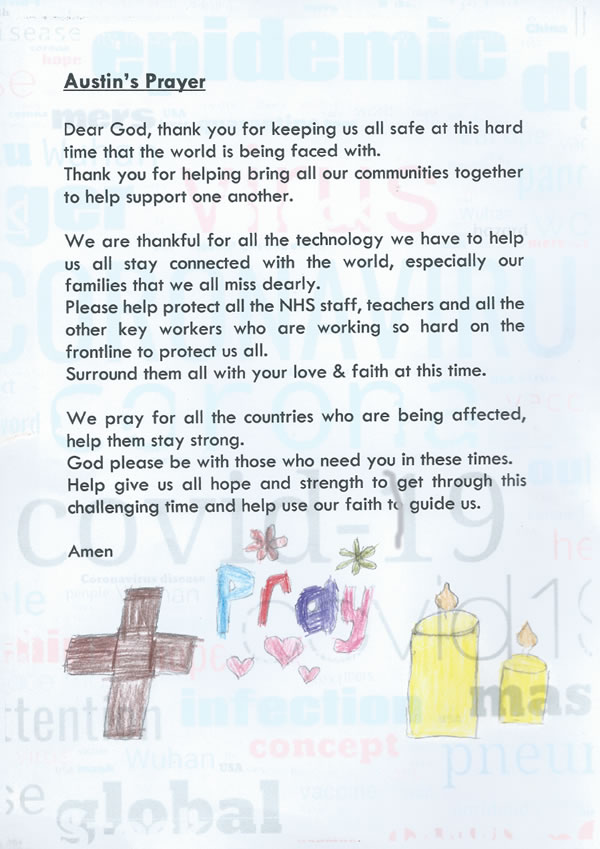 Austin's Prayer
Dear God, thank you for keeping us all safe at this hard
time that the world is being faced with.
Thank you for helping bring all our communities together
to help support one another.
We are thankful for all the technology we have to help
us all stay connected with the world, especially our
families that we all miss dearly.
Please help protect all the NHS staff, teachers and all the
other key workers who are working so hard on the
frontline to protect us all.
Surround them all with your love & faith at this time.
We pray for all the countries who are being affected,
help them stay strong.
God please be with those who need you in these times.
Help give us all hope and strength to get through this
challenging time and help use our faith to guide us.
Amen
Pray
epidemic
China
hope
mers
USA
Wuhan
virus
Wuhan
CORONAVIRU
corona
covid-19
Coronavirus disease
people
covid19
mers
infection
Wuhan
USA
concept
vaccine
global